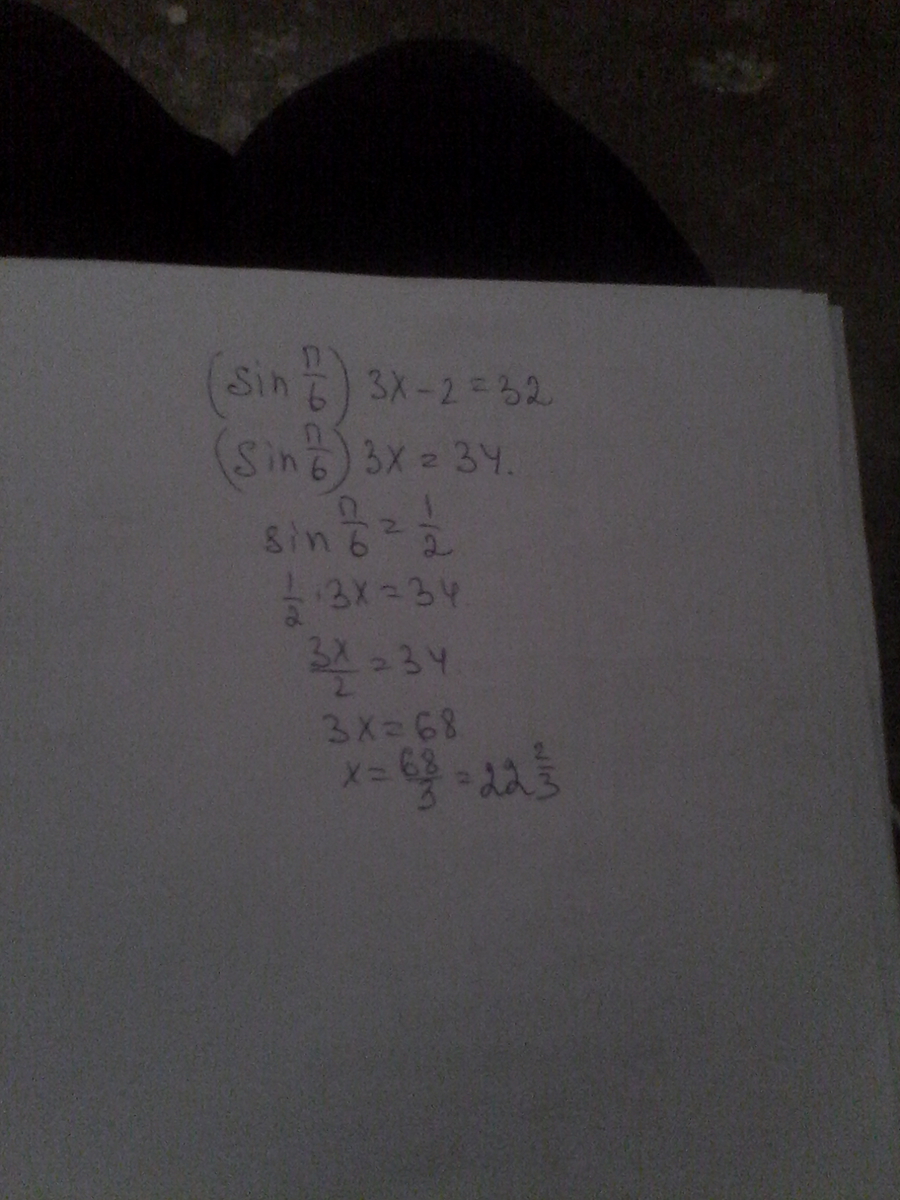 (sin π/6) 3x - 2 = 32
(sin π/6) 3x = 34.
sin π/6 = 1/2
1/2 · 3x = 34
3x/2 = 34
3x = 68
x = 68/3 = 22 2/3